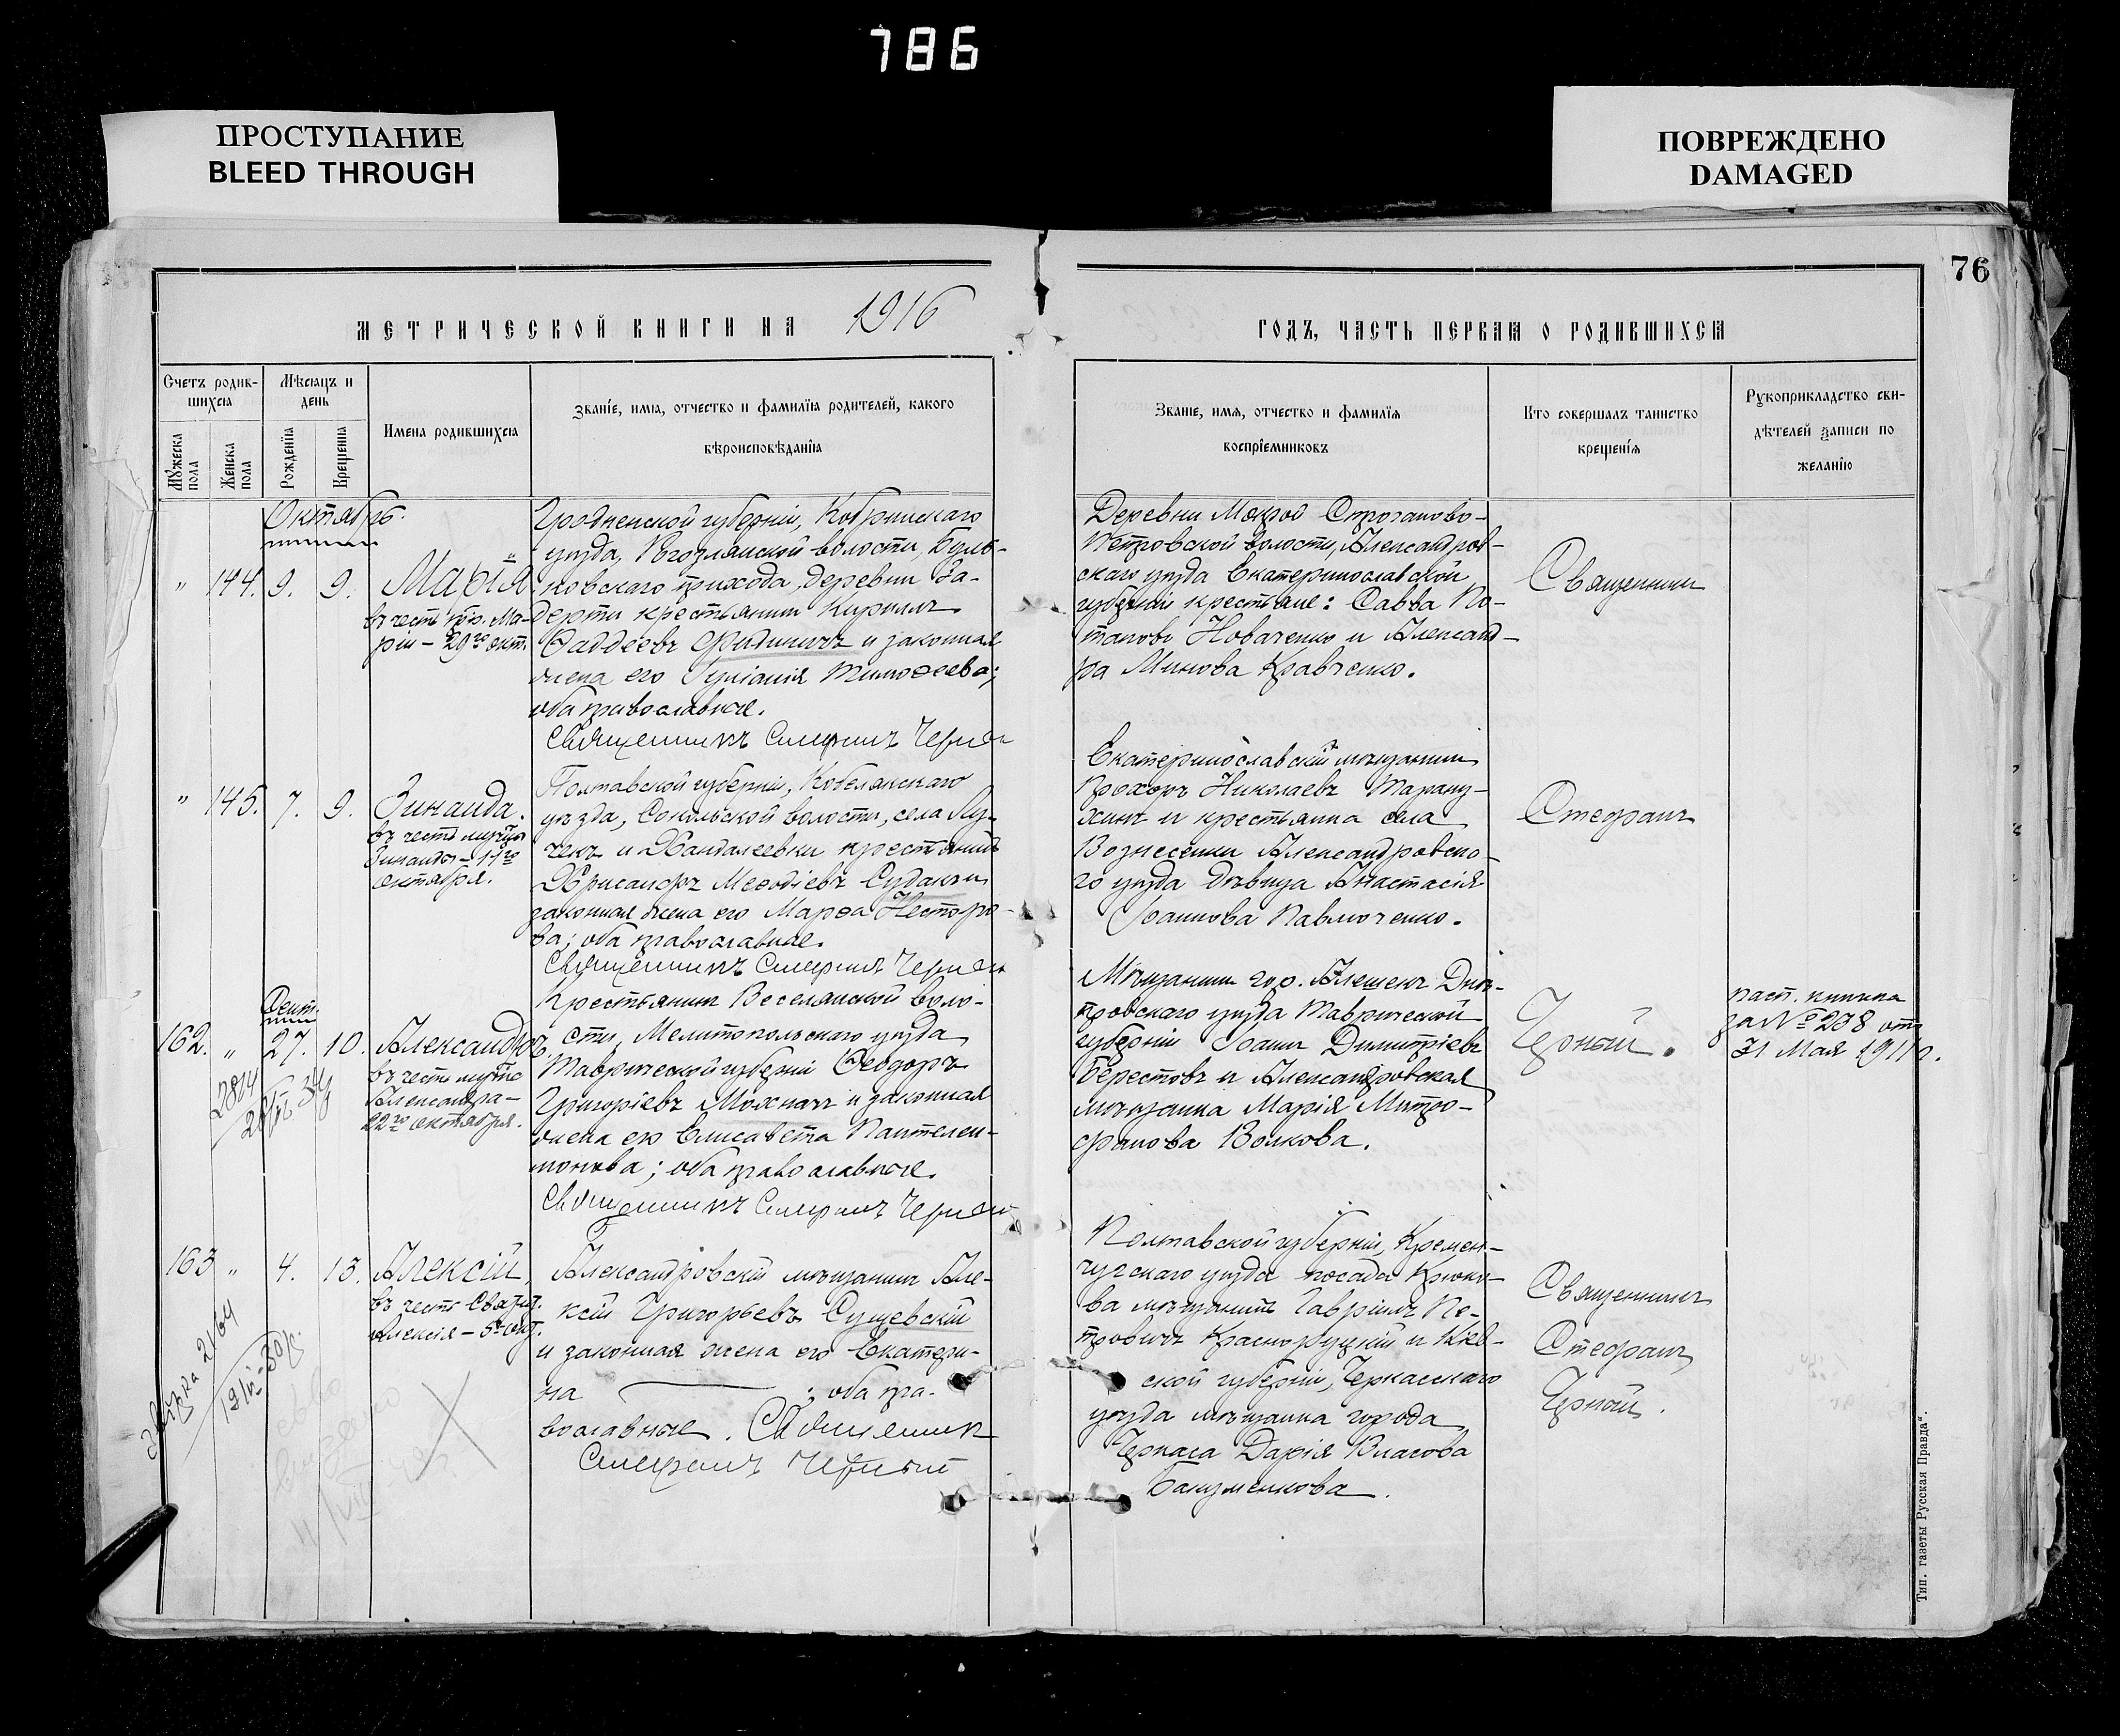 786
ПРОСТУПАНИЕ
BLEED THROUGH
ПОВРЕЖДЕНО
DAMAGED
76
МЕТРИЧЕСКОЙ КНИГИ НА 1916
ГОДЪ, ЧАСТЬ ПЕРВАЯ О РОДИВШИХСЯ
Счетъ родив-
шихся
Мѣсяцъ и
день
Имена родившихся
Званіе, имя, отчество и фамилія родителей, какого
вѣроисповѣданія
Мужеска
пола
Женска
пола
Рожденія
Крещенія
Званіе, имя, отчество и фамилія
воспріемниковъ
Кто совершалъ таинство
крещенія
Рукоприкладство сви-
дѣтелей записи по
желанію
Октябрь.
" 144. 9. 9. Марія
въ честь преп. Ма-
ріи – 29го окт.
Гродненской губерніи, Кобринскаго
уѣзда, волости,
ковскаго прихода, деревни За-
дерти крестьянинъ Кириллъ
Фаддеевъ и законная
жена его Іуліанія Тимоѳеева;
оба православные.
Священникъ Стефанъ Черный
Деревни Мокрой Строганово-
Петровской волости, Александров-
скаго уѣзда Екатеринославской
губерніи крестьяне: Савва По-
таповъ Новаченко и Александ-
ра Минова Кравченко.
Священникъ
" 145. 7. 9. Зинаида.
въ честь мучцы
Зинаиды – 11го
октября.
Полтавской губерніи, Кобелякскаго
уѣзда, Сокольской волости, села Лу-
чекъ и Хандалеевки крестьянинъ
Хрисанфъ Меѳодіевъ и
законная жена его Марѳа Несторо-
ва; оба православные.
Священникъ Стефанъ Черный
Екатеринославскій мѣщанинъ
Прохоръ Николаевъ
и крестьянка села
Вознесенки Александровска-
го уѣзда дѣвица Анастасія
Іоаннова Павлюченко.
Стефанъ
Сент.
162. " 27. 10. Александръ
въ честь мучне
Александра –
22го октября.
2814
Крестьянинъ Веселянской воло-
сти, Мелитопольскаго уѣзда
Таврической губерніи Ѳеодоръ
Григоріевъ Мохначъ и законная
жена его Елисавета Пантелеи-
монова; оба православные.
Священникъ Стефанъ Черный
Мѣщанинъ гор. Алешекъ Днѣ-
провскаго уѣзда Таврической
губерніи Іоаннъ Димитріевъ
Берестовъ и Александровская
мѣщанка Марія Митро-
фанова Волкова.
Черный.
пасп. книжка
за № 238 отъ
31 Мая 1911 г.
163 " 4. 13. Алексій,
въ честь Святит.
Алексія – 5го Окт.
справка 2164
Александровскій мѣщанинъ Але-
ксій Григорьевъ Сущевскій
и законная жена его Екатери-
на ——— ; оба пра-
вославные. Священникъ
Стефанъ Черный
Полтавской губерніи, Кремен-
чугскаго уѣзда посада Крюко-
ва мѣщанинъ Гавріилъ Пе-
тровичъ и Кіев-
ской губерніи, Черкасскаго
уѣзда мѣщанка города
Черкаса Дарія Власова
Священникъ
Стефанъ
Черный.
Тип. газеты „Русская Правда“.